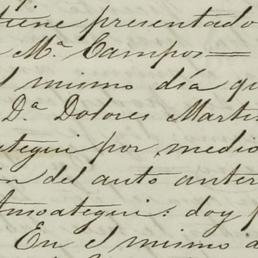 tiene presentado
Mª Campos=
l mismo día qu
Dª Dolores Marti
tegui por medio
ón del auto anter
Ansoategui: doy f
En el mismo d